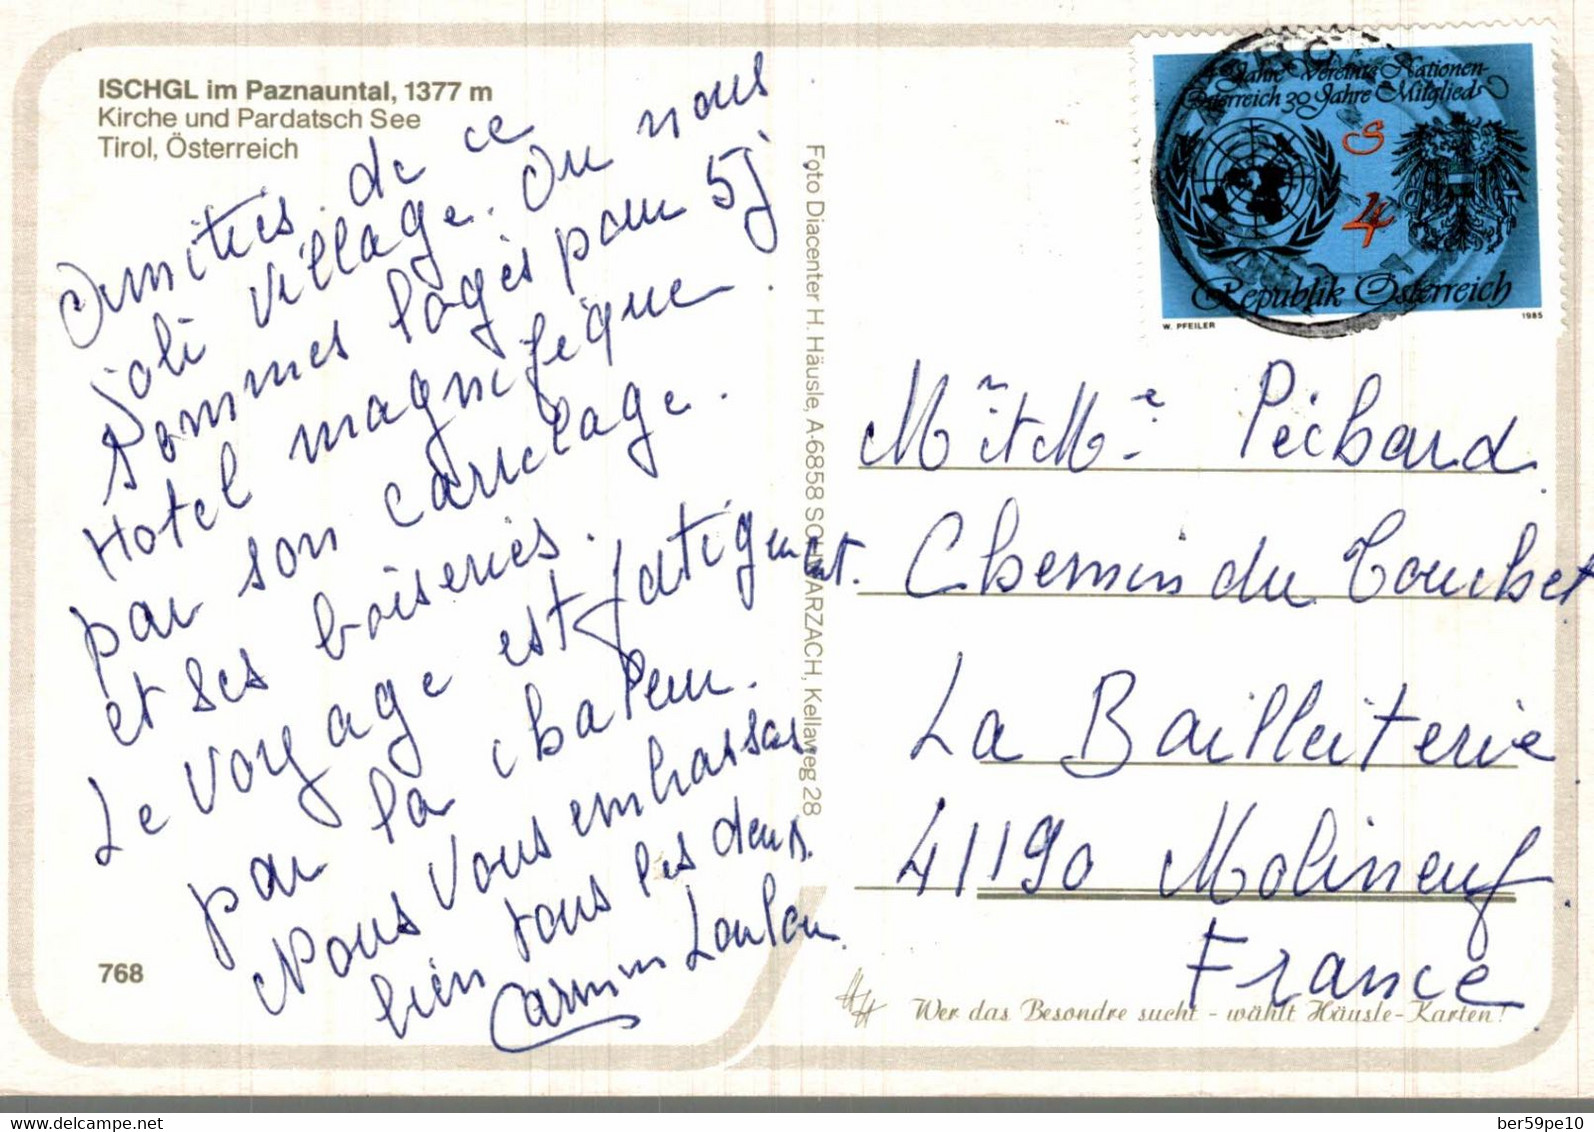 ISCHGL im Paznauntal, 1377 m
Kirche und Pardatsch See
Tirol, Österreich
Amitiés de ce
joli village. On nous
sommes logés pour 5j
Hotel magnifique.
par son carrelage.
et ses boiseries.
Le voyage est fatiguant.
par la chaleur.
Nous vous embrassons
bien tous les deux.
Carmin Loulou.
768
Foto Diacenter H. Häusle, A-6858 SCHWARZACH, Kellaweg 28
Jahre Vereinte Nationen-
Österreich 30 Jahre Mitglied
S
4
Republik Österreich
W. PFEILER
1985
Mr et Me Péchard
Chemin du Touchet
La Bailleiterie
41190 Molineuf
France
HH Wer das Besondre sucht - wählt Häusle-Karten!
delcampe.net
ber59pe10